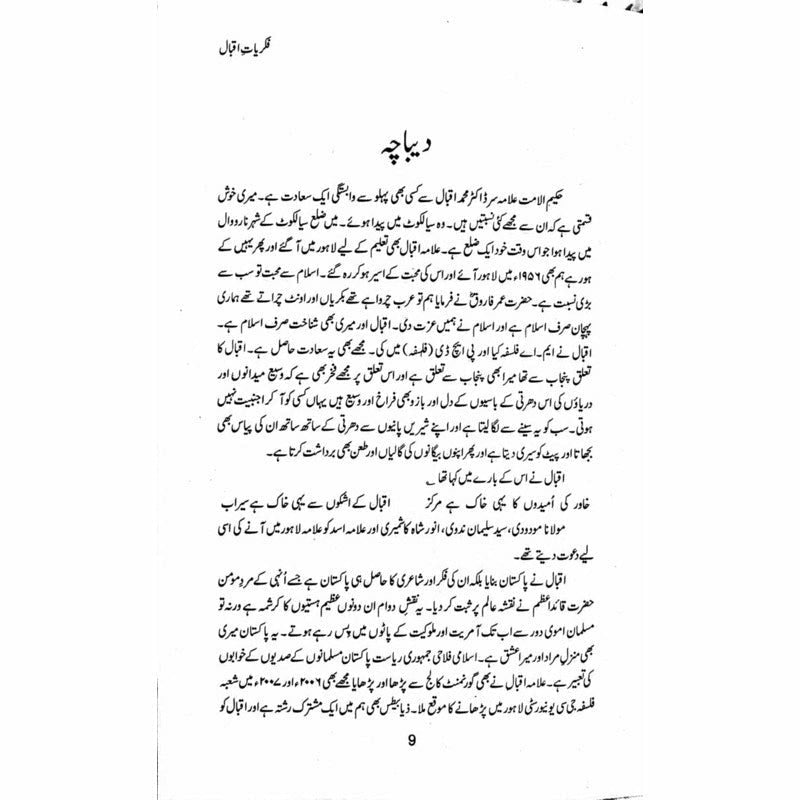 فکریاتِ اقبال
دیباچہ
حکیم الامت علامہ سر ڈاکٹر محمد اقبال سے کسی بھی پہلو سے وابستگی ایک سعادت ہے۔ میری خوش
قسمتی ہے کہ ان سے مجھے کئی نسبتیں ہیں۔ وہ سیالکوٹ میں پیدا ہوئے۔ میں ضلع سیالکوٹ کے شہر نارووال
میں پیدا ہوا جو اس وقت خود ایک ضلع ہے۔ علامہ اقبال بھی تعلیم کے لیے لاہور میں آ گئے اور پھر یہیں کے
ہو رہے ہم بھی ۱۹۵۶ء میں لاہور آئے اور اس کی محبت کے اسیر ہو کر رہ گئے۔ اسلام سے محبت تو سب سے
بڑی نسبت ہے۔ حضرت عمر فاروقؓ نے فرمایا ہم تو عرب چرواہے تھے بکریاں اور اونٹ چراتے تھے ہماری
پہچان صرف اسلام ہے اور اسلام نے ہمیں عزت دی۔ اقبال اور میری بھی شناخت صرف اسلام ہے۔
اقبال نے ایم۔ اے فلسفہ کیا اور پی ایچ ڈی (فلسفہ) میں کی۔ مجھے بھی یہ سعادت حاصل ہے۔ اقبال کا
تعلق پنجاب سے تھا میرا بھی پنجاب سے تعلق ہے اور اس تعلق پر مجھے فخر بھی ہے کہ وسیع میدانوں اور
دریاؤں کی اس دھرتی کے باسیوں کے دل اور بازو بھی فراخ اور وسیع ہیں یہاں کسی کو آ کر اجنبیت نہیں
ہوتی۔ سب کو یہ سینے سے لگا لیتا ہے اور اپنے شیریں پانیوں سے دھرتی کے ساتھ ساتھ ان کی پیاس بھی
بجھاتا اور پیٹ کو سیری دیتا ہے اور پھر اپنوں بیگانوں کی گالیاں اور طعن بھی برداشت کرتا ہے۔
اقبال نے اس کے بارے میں کہا تھا ؂
خاور کی اُمیدوں کا یہی خاک ہے مرکز اقبال کے اشکوں سے یہی خاک ہے سیراب
مولانا مودودی، سید سلیمان ندوی، انور شاہ کاشمیری اور علامہ اسد کو علامہ لاہور میں آنے کی اسی
لیے دعوت دیتے تھے۔
اقبال نے پاکستان بنایا بلکہ ان کی فکر اور شاعری کا حاصل ہی پاکستان ہے جسے اُنہی کے مردِ مؤمن
حضرت قائد اعظم نے نقشہ عالم پر ثبت کر دیا۔ یہ نقشِ دوام ان دونوں عظیم ہستیوں کا کرشمہ ہے ورنہ تو
مسلمان اموی دور سے اب تک آمریت اور ملوکیت کے پاٹوں میں پس رہے ہوتے۔ یہ پاکستان میری
بھی منزلِ مراد اور میرا عشق ہے۔ اسلامی فلاحی جمہوری ریاست پاکستان مسلمانوں کے صدیوں کے خوابوں
کی تعبیر ہے۔ علامہ اقبال نے بھی گورنمنٹ کالج سے پڑھا اور پڑھایا مجھے بھی ۲۰۰۶ء اور ۲۰۰۷ء میں شعبہ
فلسفہ جی سی یونیورسٹی لاہور میں پڑھانے کا موقع ملا۔ ذیابیطس بھی ہم میں ایک مشترک رشتہ ہے اور اقبال کو
9